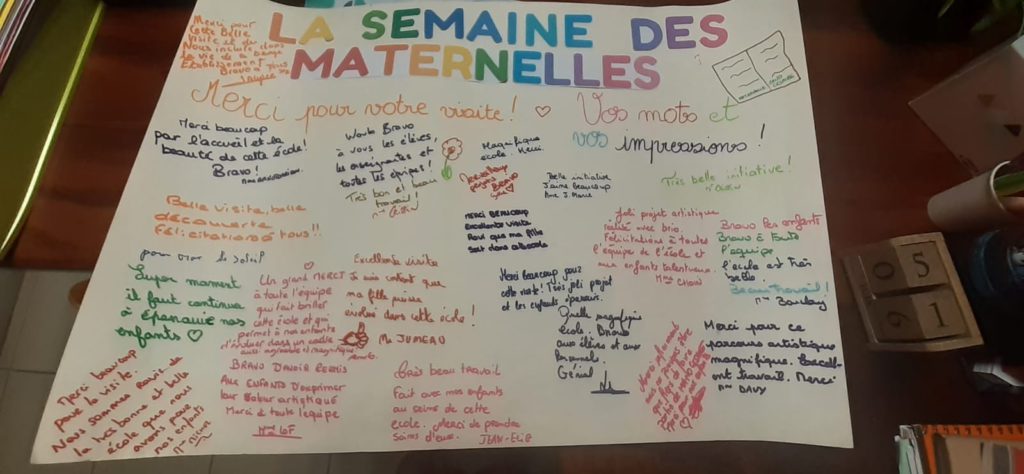 LA SEMAINE DES
MATERNELLES
Merci pour
Cette Belle
Visite et du
Nous inclure dans
la vie de
Etablissement
Bravo à tous
Merci pour votre visite !
Vos mots et
vos impressions !
Merci beaucoup
par l'accueil et la
beauté de cette école !
Bravo !
Bravo
à vous les élèves,
les enseignantes et
toutes les équipes !
Très bon et beau
travail !
Magnifique
école. Merci.
BRAVO
Belle initiative
J'aime Beaucoup
Très belle initiative !
Belle visite, belle
découverte
Félicitations à tous !!
MERCI BEAUCOUP
Excellente visite
Pour que ma fille
Soit dans
Joli projet artistique
réalisé avec brio.
Félicitations à toutes
l'équipe de l'école et
aux enfants talentueux.
Bravo les enfants
Bravo à toute
l'équipe
l'école est Très
belle.
Beau travail !
pour voir le soleil
Super moment
il faut continua
à épanouie nos
enfants
Un grand MERCI
à toute l'équipe
qui fait briller
cette école et qui
permet à nos enfants
d'évoluer dans un cadre
aussi agréable et magnifique
Excellente visite
Je suis content que
ma fille puisse
évoluer dans cette école !
M. JUMEAU
Merci beaucoup pour
cette visite ! Très joli projet
et les enfants épanouis.
Quelle magnifique
école. Bravo
aux élèves et aux
Personnels.
Génial
Merci pour ce
parcours artistiques
magnifique. Excell-
ent travail. Merci
Mme DAVY
Merci beaucoup
pour la visite.
Nous sommes Ravit de
la très bonne et belle
école que nous
avons pour
nos enfants
BRAVO D'AVOIR PERMIS
AUX ENFANTS D'EXPRIMER
leur Valeur artistique
Merci à toute l'équipe
Mme LOF
Très beau travail
Fait avec mes enfants
au seins de cette
école. Merci de prendre
soins d'eux. JEAN-ELIE
05
19